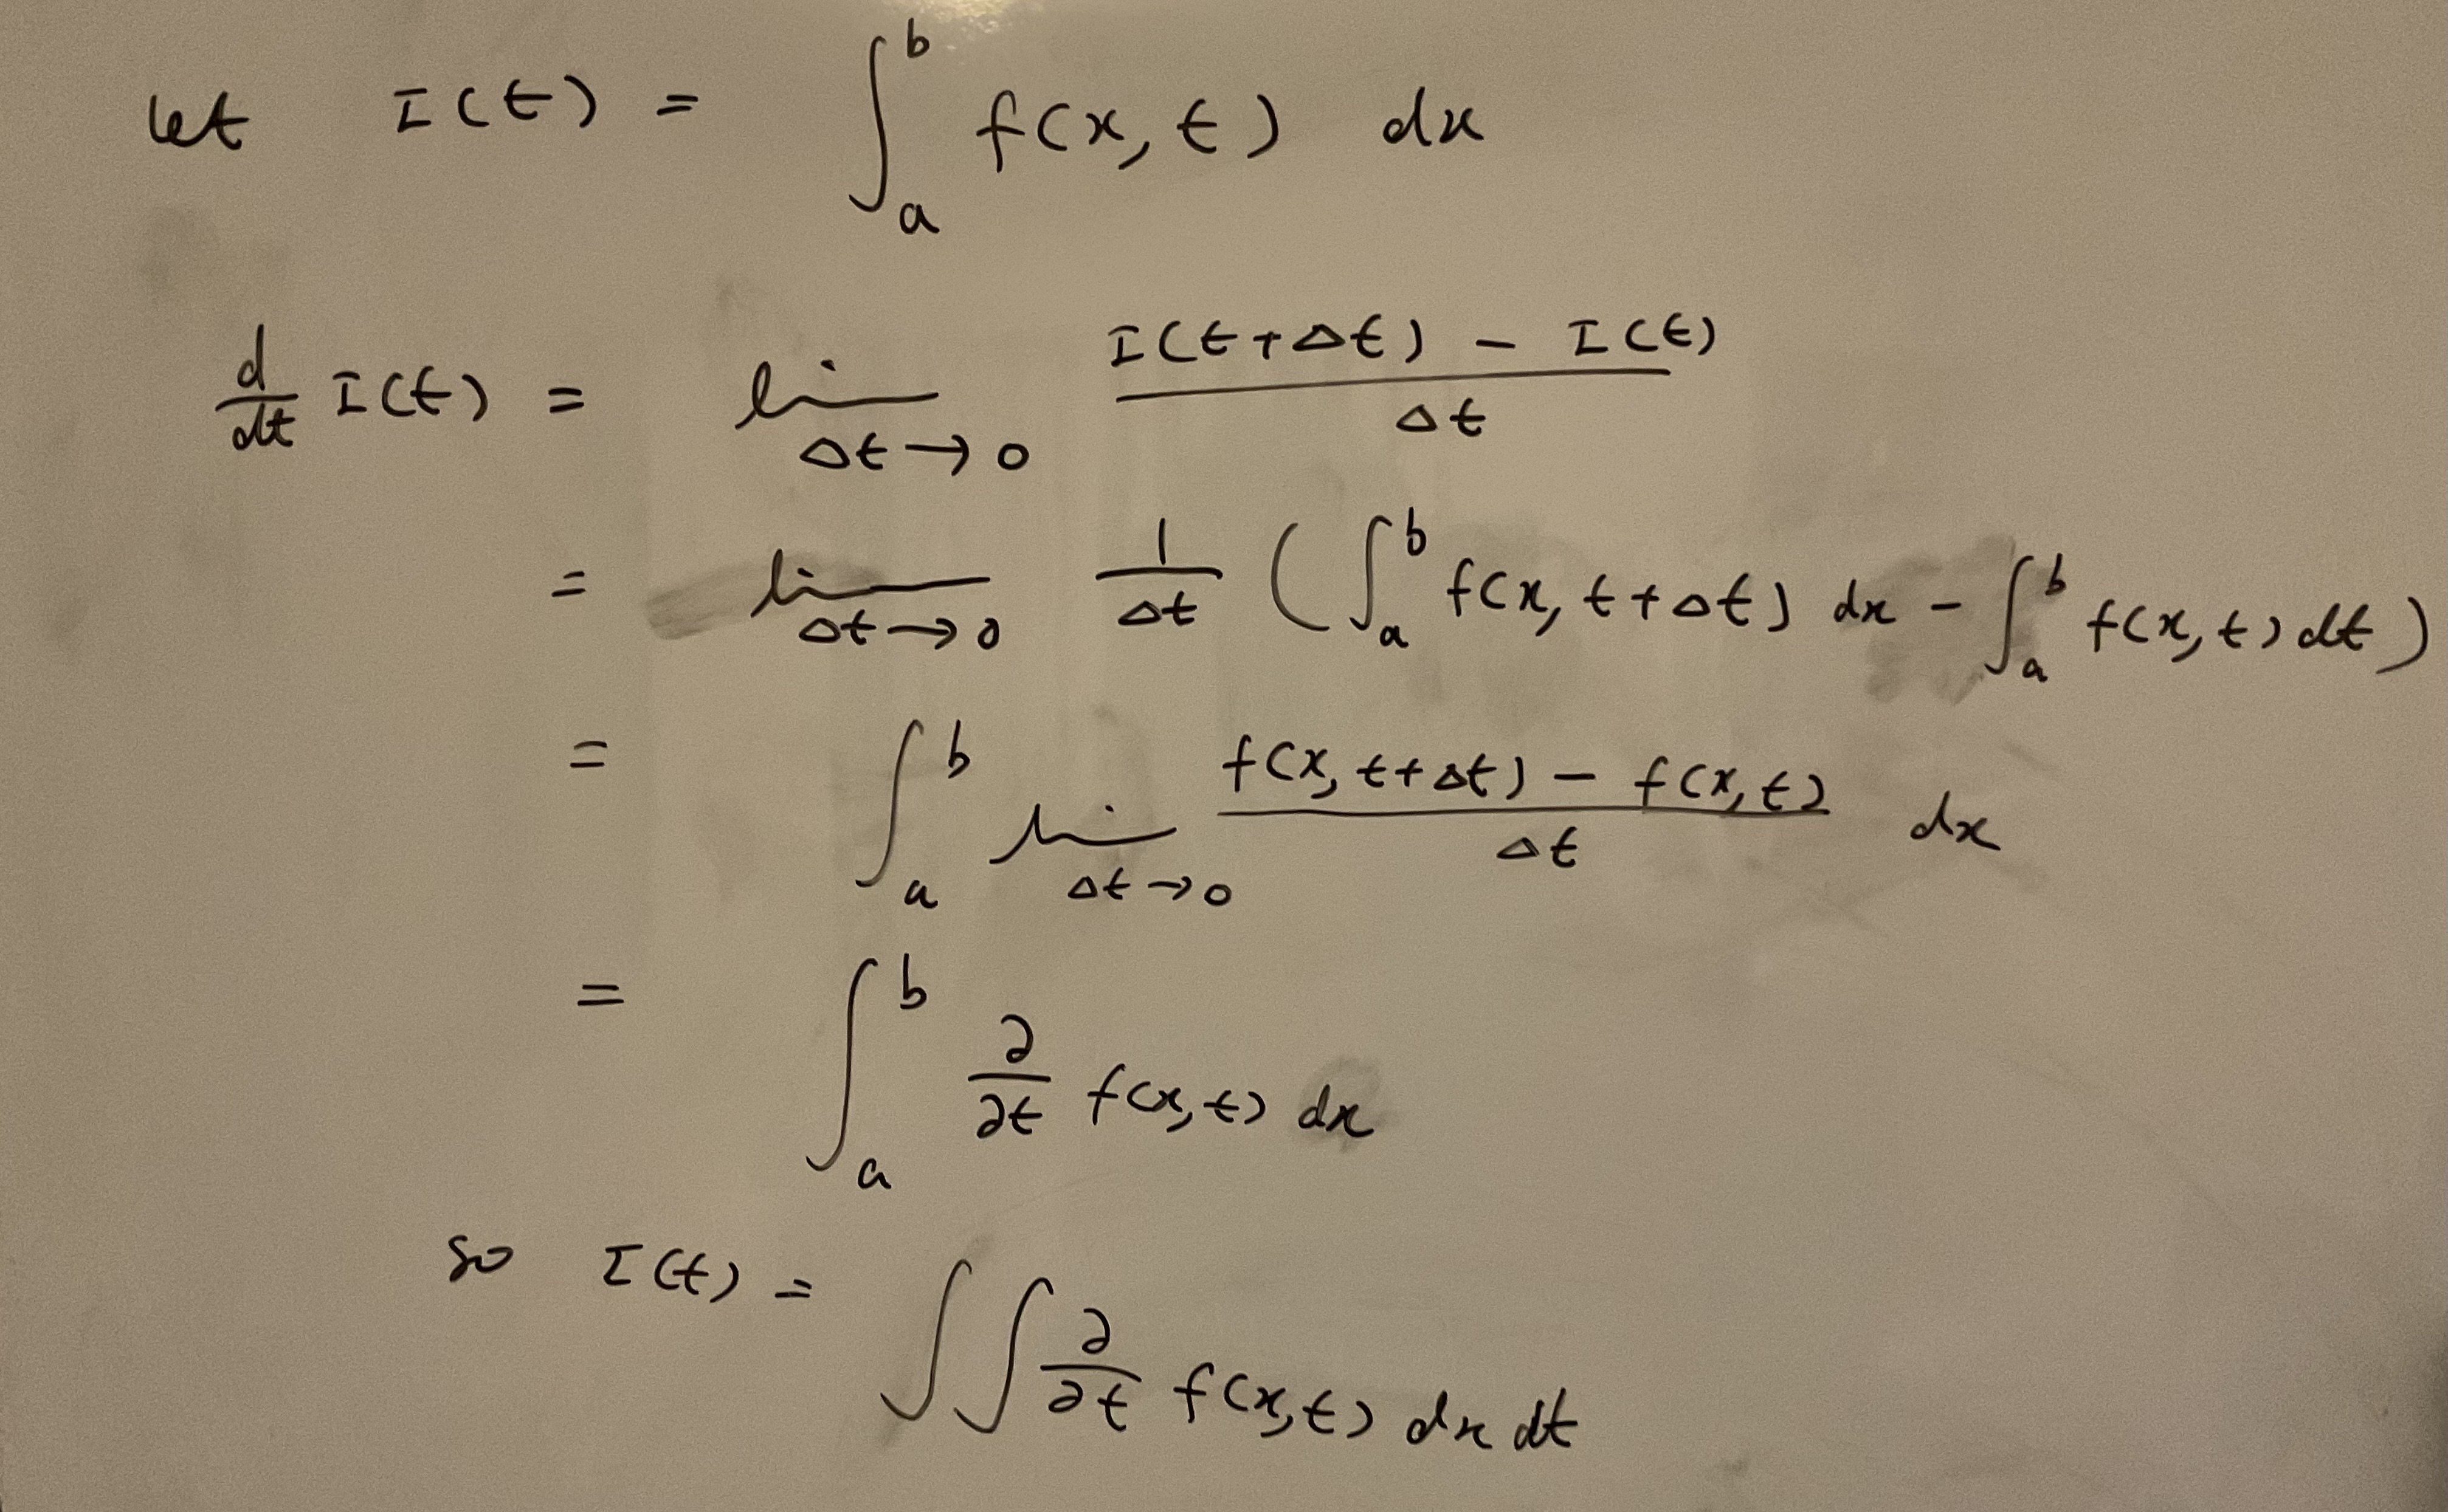 let I(t) = ∫_a^b f(x, t) dx
d/dt I(t) = lim_{Δt→0} (I(t+Δt) − I(t))/Δt
= lim_{Δt→0} 1/Δt (∫_a^b f(x, t+Δt) dx − ∫_a^b f(x, t) dt)
= ∫_a^b lim_{Δt→0} (f(x, t+Δt) − f(x, t))/Δt dx
= ∫_a^b ∂/∂t f(x, t) dx
so I(t) = ∫∫ ∂/∂t f(x, t) dx dt